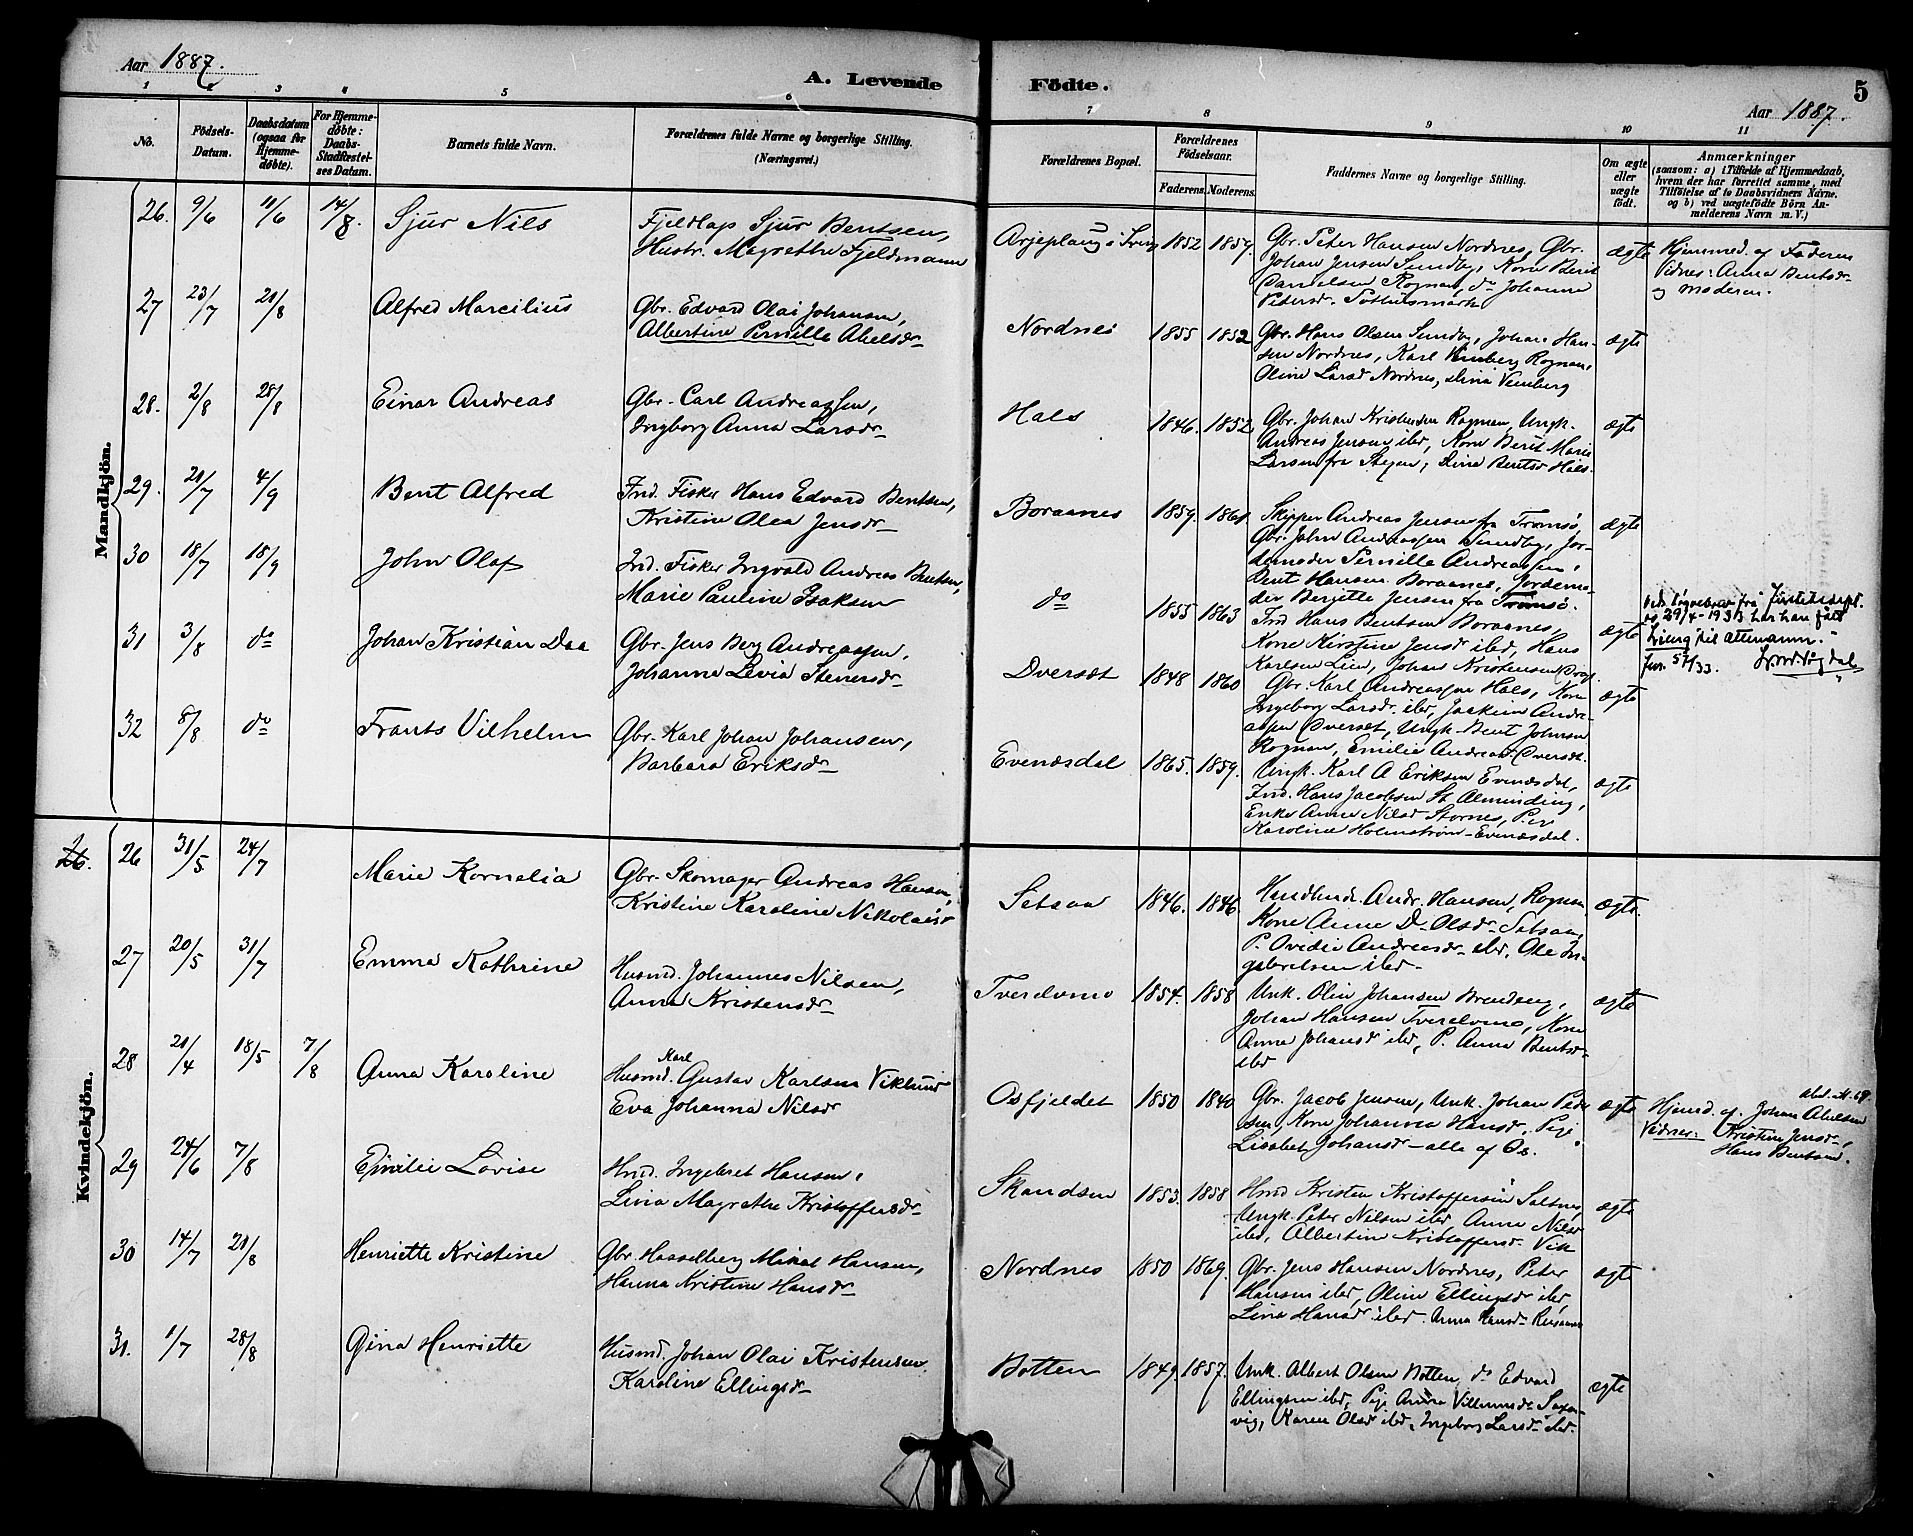 Aar 1887.
A. Levende Födte.
5
Aar 1887.
1 2 3 4 5 6 7 8 9 10 11
No.
Födsels-Datum.
Daabsdatum (ogsaa for Hjemme-döbte).
For Hjemme-döbte: Daabs-Stadfæstel-ses Datum.
Barnets fulde Navn.
Forældrenes fulde Navne og borgerlige Stilling.
(Næringsvei.)
Forældrenes Bopæl.
Forældrenes Födselsaar.
Faderens. Moderens.
Faddernes Navne og borgerlige Stilling.
Om ægte eller uægte födt.
Anmærkninger
(saasom: a) i Tilfælde af Hjemmedaab,
hvem der har forrettet samme, med
Tilföielse af to Daabsvidners Navne.
og b) ved uægtefödte Börn An-
melderens Navn m. V.)
Mandkjön.
26. 9/6 11/6 14/8. Sjur Nils
Fjeldlap Sjur Bentsen,
Hustr. Magrethe Fjeldmann
Arjeplaug i Sverig 1852 1859.
Gbr. Peter Hansen Nordnes, Gbr.
Johan Jensen Sundby, Kone Berit
Danielsen Rognan, do Johanna
Petersd.
ægte
Hjemmed. af Faderen
Vidner: Anna Bentsdr
og Moderen.
27 23/7 21/8 Alfred Marcilius
Gbr. Edvard Olai Johansen,
Albertine Pernille Abelsdr
Nordnes 1855 1852
Gbr. Hans Olsen Sundby, Johan Han-
sen Nordnes, Karl Venberg Rognan,
Oline Larsd Nordnes, Lina Venberg
ægte
28. 2/8 28/8 Einar Andreas
Gbr. Carl Andreassen,
Ingborg Anna Larsdr
Hals 1846. 1852.
Gbr. Johan Kristensen Rognan, Ungk.
Andreas Jensen ibd, Kone Berit Marie
Larsen fra Stegen, Dina Bentsd Hals.
ægte
29. 21/7 4/9 Bent Alfred
Ind. Fisker Hans Edvard Bentsen,
Kristine Olea Jensdr
Boraanes 1859. 1861
Skipper Andreas Jensen fra Tromsö,
Gbr. John Andreassen Sundby, Jor-
demoder Pernille Andreassen,
Bent Hansen Boraanes, Jordemo-
der Bergette Jensen fra Tromsö.
ægte
30 18/7 18/9 John Olaf
Ind. Fisker Ingvald Andreas Bentsen,
Marie Pauline Isaksen
do 1855 1863
Ind Hans Bentsen Boraanes,
Kone Kirstine Jensd ibd, Hans
Karlsen Lien, Johan Kristensen
ægte
29/4-1933 har han fått
til
31 3/8 do Johan Kristian Daa
Gbr. Jens Berg Andreassen,
Johanna Levia Stenersdr
Dverset 1848 1860
Gbr. Karl Andreassen Hals, Kone
Ingeborg Larsdr. ibd, Joakim Andre-
assen Dverset, Ungk. Bent Johnsen
Rognan, Emilie Andreasd Dverset.
ægte
32 8/8 do Frants Vilhelm
Gbr. Karl Johan Johansen,
Barbara Eriksdr
Evenæsdal 1865. 1859.
Ungk. Karl A Eriksen Evenæsdal,
Ind. Hans Jacobsen St. Alminding,
Enke Anne Nilsd Stornes, Pige
Karoline Holmström Evenæsdal.
ægte
Kvindekjön.
26 31/5 24/7 Marie Kornelia
Gbr. Skomager Andreas Hansen,
Kristine Karoline Nikolaisdr
Setsaa 1846. 1846.
Andr. Hansen, Rognan
Kone Anne D. Olsdr Setsaa,
P. Ovidie Andreasdr ibd, Ole In-
gebretsen ibd
ægte.
27 20/5 31/7 Emma Kathrine
Husmd. Johannes Nilsen,
Anna Kristensdr
Tverdvmo 1854. 1858
Unk. Olin Johansen Brendeng,
Johan Hansen Tverdvmo, Kone
Anna Johansd ibd, P. Anna Bentsd
ibd
ægte
28 21/4 18/5 7/8 Anna Karoline
Karl
Husmd. Gustav Karlsen Viklund
Eva Johanna Nilsdr
Osfjeldet 1850 1840
Gbr. Jacob Jensen, Unk. Johan Peder-
sen, Kone Johanna Hansd, Pige
Lisabet Johansd - alle af Os.
ægte
Hjemd. af Johan Abelsen
Vidner: Kristine Jensdr,
Hans Bentsen.
29 24/6 7/8 Emilie Lovise
Hmd. Ingebret Hansen,
Livia Magrethe Kristoffersdr
Skandsen 1853. 1858
Hmd Kristen Kristoffersen Saltnes
Ungk. Peter Nilsen ibd, Anna Nilsd
ibd, Albertine Kristoffersd. Vik
ægte
30 14/7 21/8 Henriette Kristine
Gbr. Hasselberg Mikal Hansen,
Hanna Kristine Hansdr
Nordnes 1850 1869.
Gbr. Jens Hansen Nordnes, Peter
Hansen ibd, Oline Ellingsdr ibd
Lina Hansdr ibd. Anna Hansdr
ægte
31. 1/7 28/8 Gina Henriette
Husmd. Johan Olai Kristensen
Karoline Ellingsdr
Botten 1849 1857.
Unk. Albert Olsen Botten, do Edvard
Ellingsen ibd, Pige Anna Villumsdr Saxen-
vig, Karen Olsd ibd, Ingeborg Larsdr ibd.
ægte